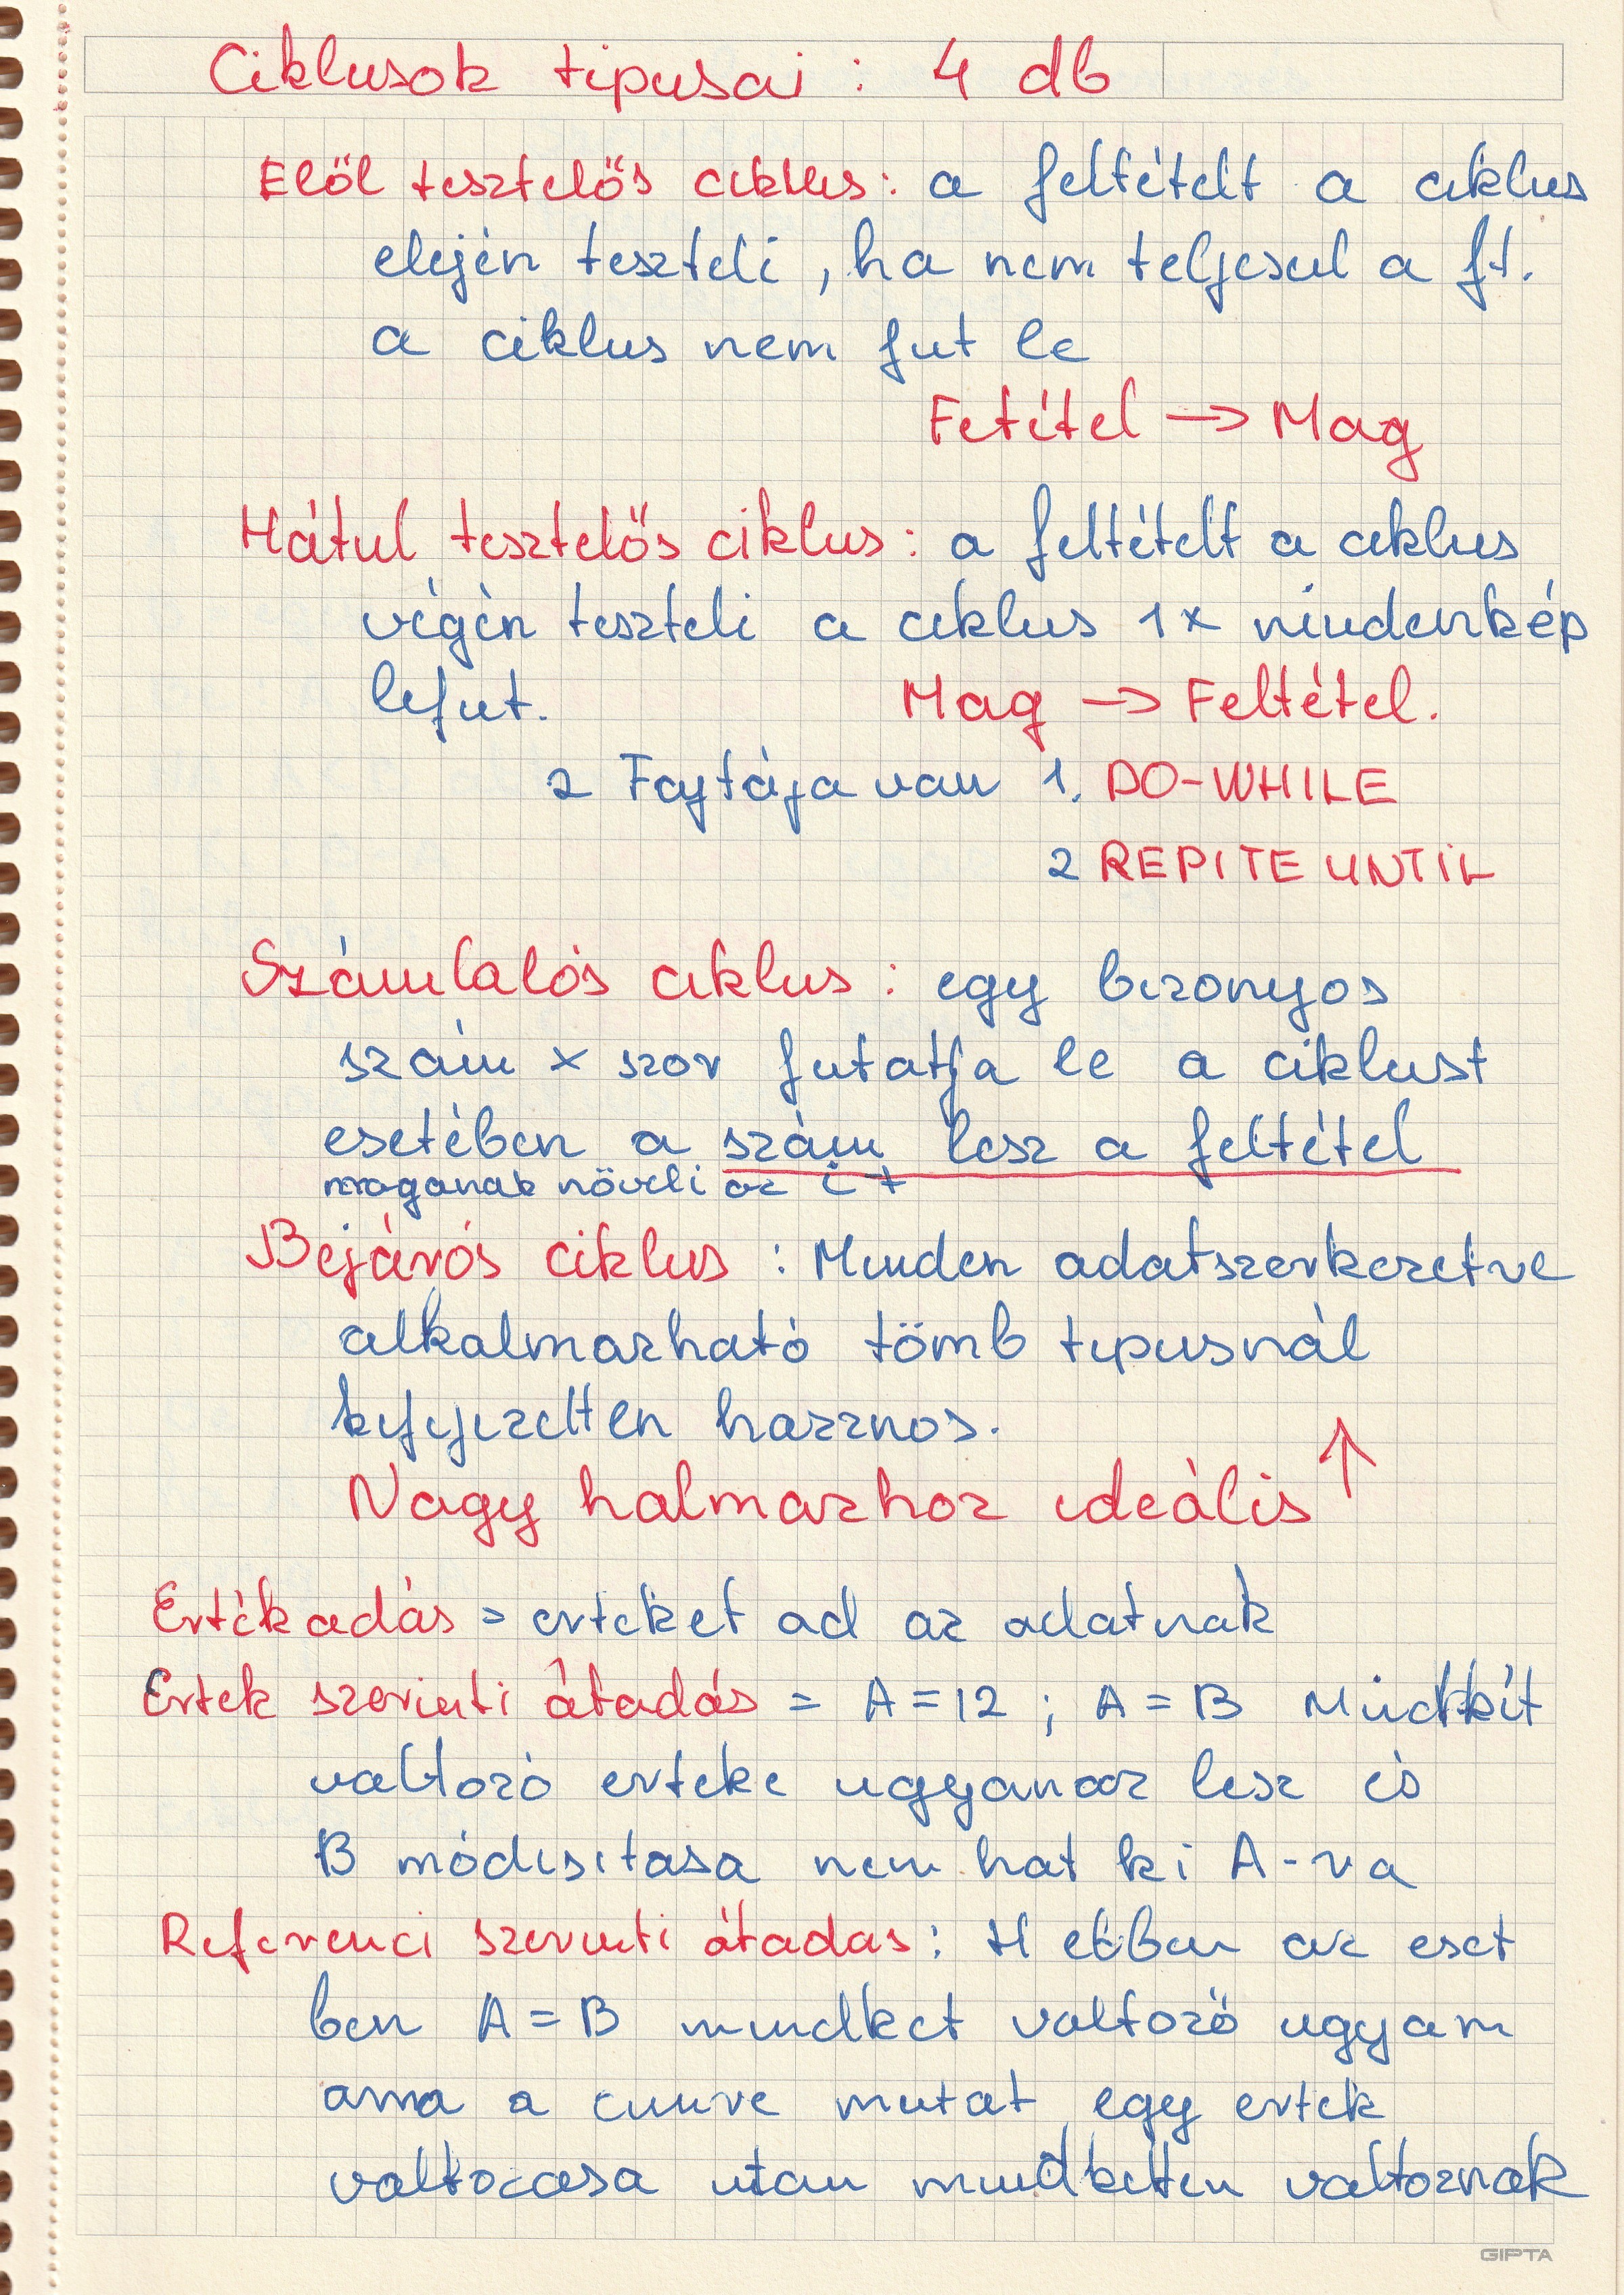 Ciklusok tipusai : 4 db
Elől tesztelős ciklus: a feltételt a ciklus
elején teszteli, ha nem teljesul a ft.
a ciklus nem fut le
Fetétel → Mag
Hátul tesztelős ciklus: a feltételt a ciklus
végén teszteli a ciklus 1x mindenkép
lefut. Mag → Feltétel.
2 Fajtája van 1. DO-WHILE
2 REPITE UNTIL
Számlalós ciklus : egy bizonyos
szám x szor futatja le a ciklust
esetében a szám lesz a feltétel
maganak növeli az i +
Bejárós ciklus : Minden adatszerkezetre
alkalmazható tömb tipusnál
kifejezetten hasznos.
Nagy halmazhoz ideális ↑
Ertékadás = erteket ad az adatnak
Ertek szerinti átadás = A=12 ; A=B Mindkét
valtozó erteke ugyanaz lesz és
B módisitasa nem hat ki A-ra
Referenci szerinti átadas: ebben az eset
ben A=B mindket valtozó ugyan
arra a cimre mutat egy ertek
valtozasa utan mindketten valtoznak
GIPTA